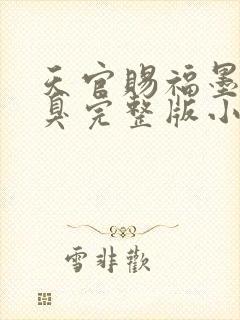 天官赐福墨
臭完整版小
雪非歡